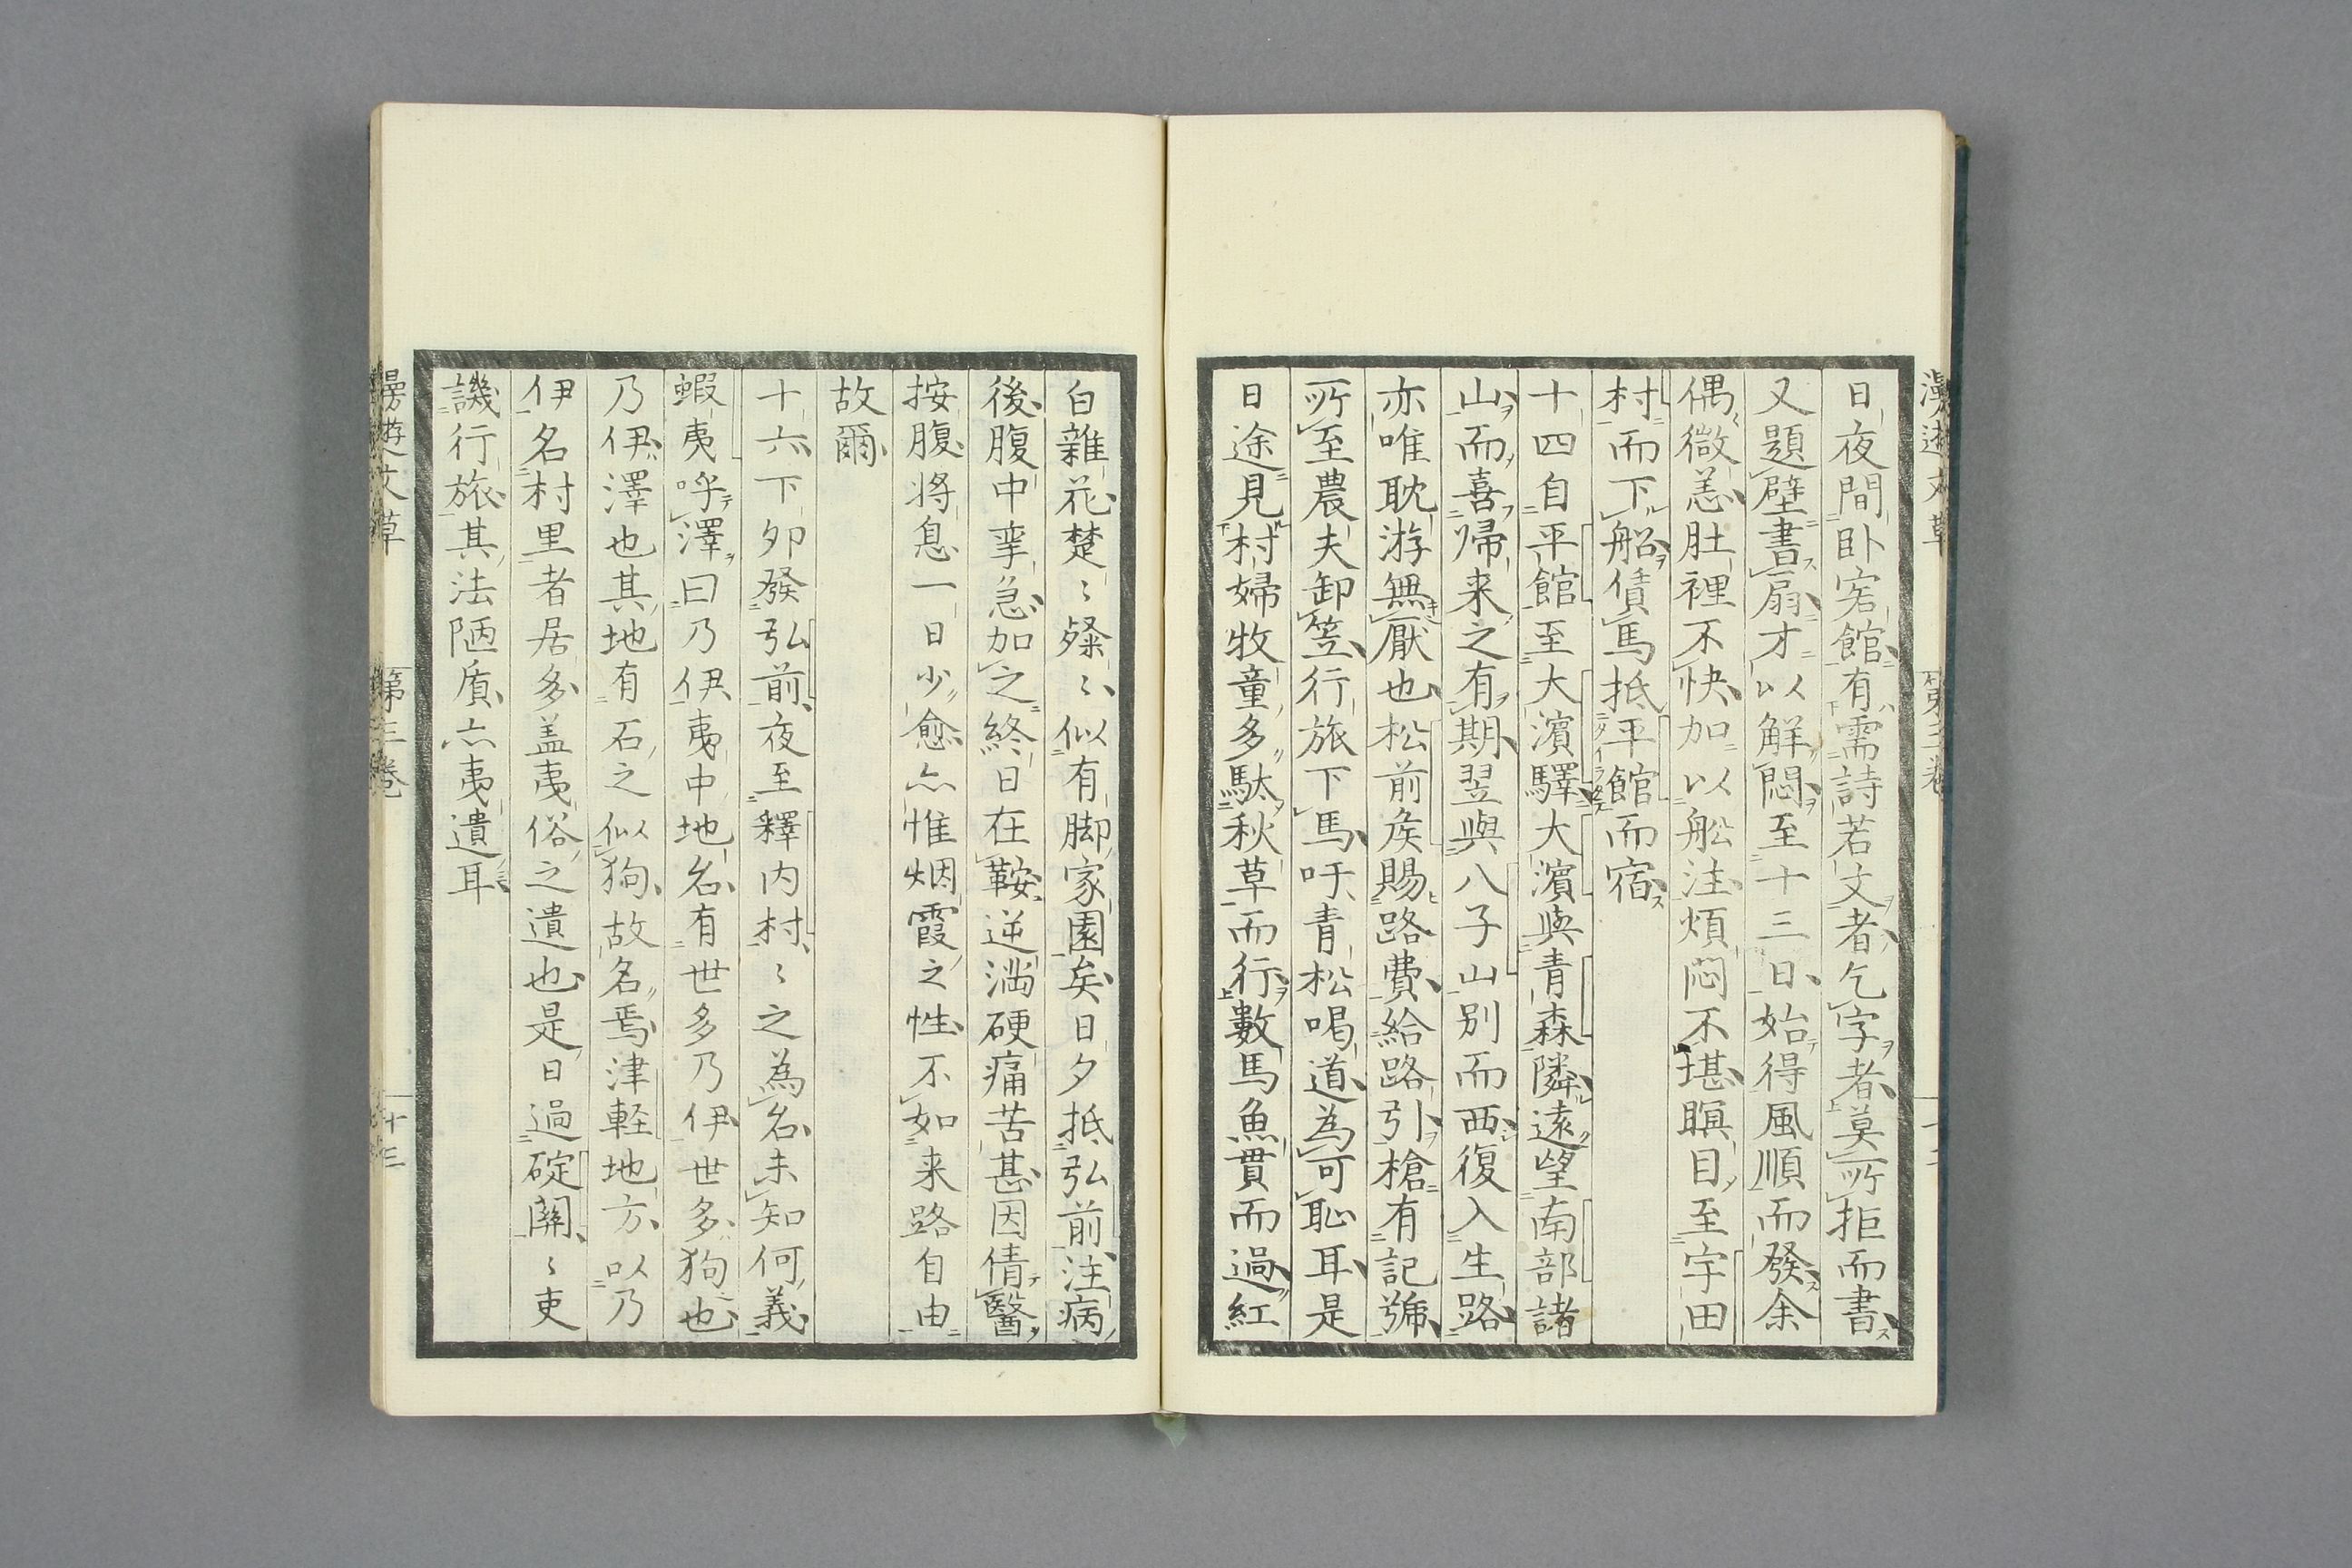 日夜間臥宕館有需詩若文者乞字者莫所拒而書
又題壁書扇才以解悶至十三日始得風順而發余
偶微恙肚裡不快加以舩注煩悶不堪瞑目至宇田
村而下船債馬抵平館而宿
十四自平館至大濵驛大濵與青森隣遠望南部諸
山而喜帰来之有期翌與八子山別而西復入生路
亦唯耽游無厭也松前矦賜路費給路引槍有記號
所至農夫卸笠行旅下馬吁青松喝道為可恥耳是
日途見村婦牧童多駄秋草而行數馬魚貫而過紅
白雜花楚〻粲〻似有脚家園矣日夕抵弘前注病
後腹中攣急加之終日在鞍逆満硬痛苦甚因倩醫
按腹将息一日少愈亦惟烟霞之性不如来路自由
故爾
十六下夘發弘前夜至釋内村〻之為名未知何義
蝦夷呼澤曰乃伊夷中地名有世多乃伊世多狗也
乃伊澤也其地有石之似狗故名焉津軽地方以乃
伊名村里者居多盖夷俗之遺也是日過碇關〻吏
譏行旅其法陋質亦夷遺耳
漫遊文草 第三卷 十三